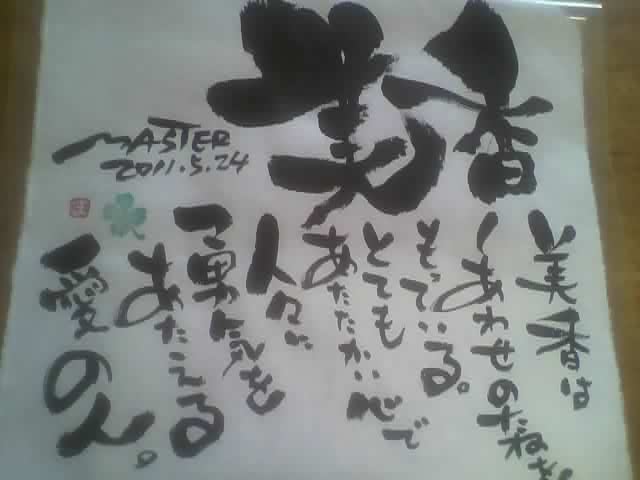 美香
美香は
しあわせの種を
もっている。
とても
あたたかい心で
人々に
勇気を
あたえる
愛の人。
MASTER
2011.5.24
ま